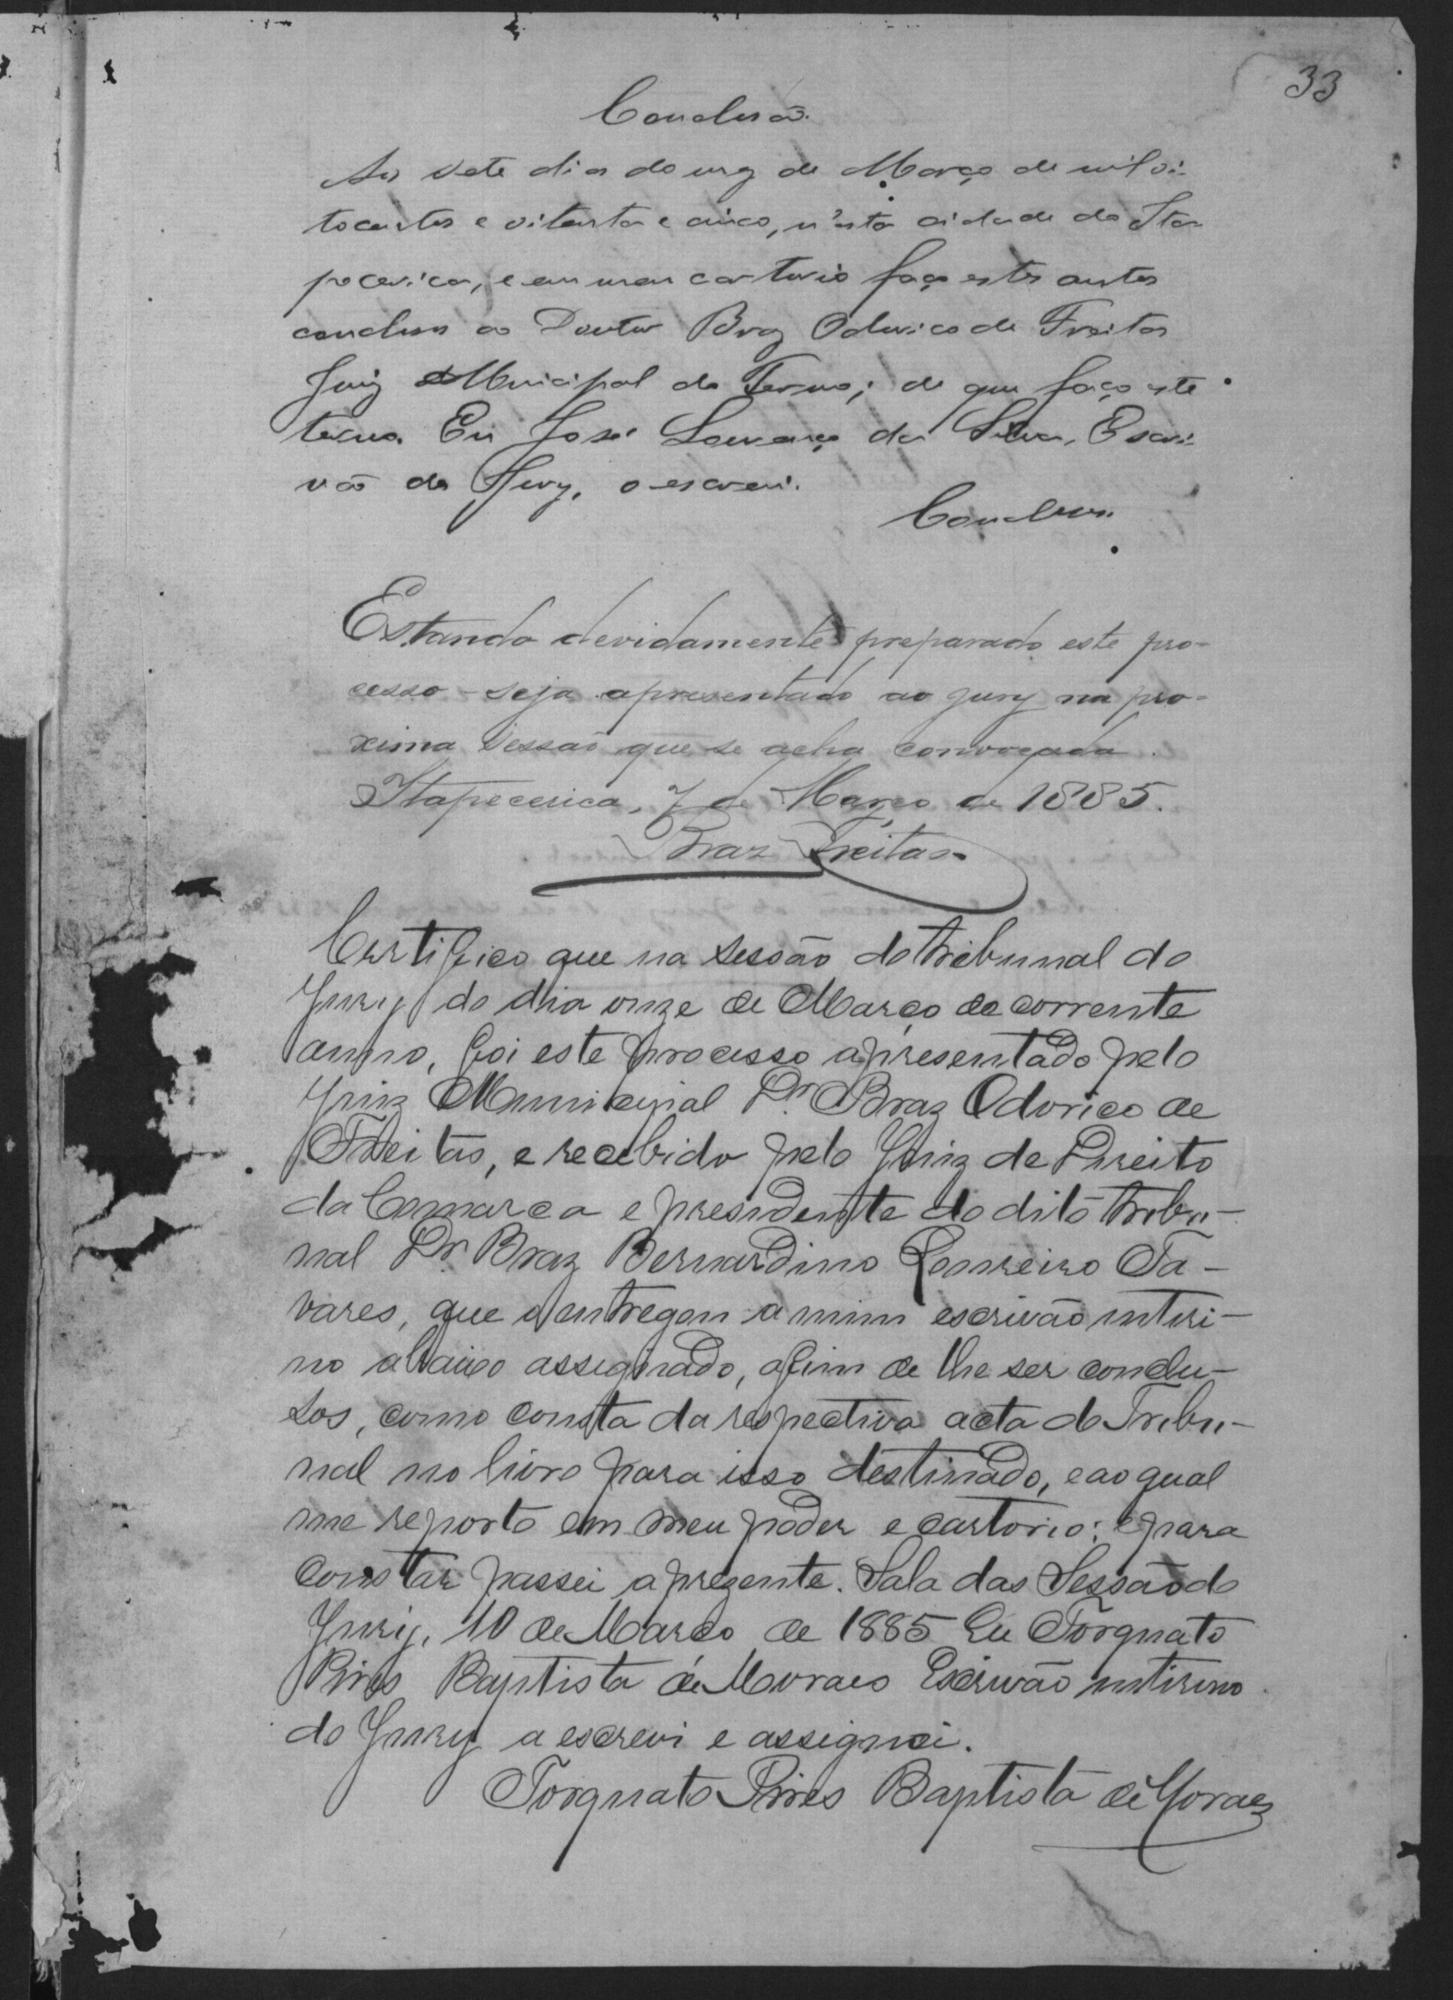 33
Conclusão.
Aos sete dias do mez de Março de mil oi-
tocentos e oitenta e cinco, n'esta cidade de Ita-
pecerica, e em meu cartorio faço estes autos
conclusos ao Doutor Braz Odorico de Freitas
Juiz Municipal do Termo; de que faço este
termo. Eu José Lourenço da Silva, Escri-
vão do Jury, o escrevi.
Conclusos.
Estando devidamente preparado este pro-
cesso - seja apresentado ao jury na pro-
xima sessão que se acha convocada.
Itapecerica, 7 de Março de 1885.
Braz Freitas
Certifico que na sessão do tribunal do
Jury do dia onze de Março do corrente
anno, foi este processo apresentado pelo
Juiz Municipal Dr. Braz Odorico de
Freitas, e recebido pelo Juiz de Direito
da Comarca e presidente do dito tribu-
nal Dr. Braz Bernardino Loureiro Ta-
vares, que o entregou a mim escrivão interi-
no abaixo assignado, afim de lhe ser conclu-
sos, como consta da respectiva acta do Tribu-
nal no livro para isso destinado, e ao qual
me reporto em meu poder e cartorio; e para
constar passei a prezente. Sala das Sessão do
Jury, 10 de Março de 1885 Eu Torquato
Pires Baptista de Moraes Escrivão interino
do Jury a escrevi e assignei.
Torquato Pires Baptista de Moraes